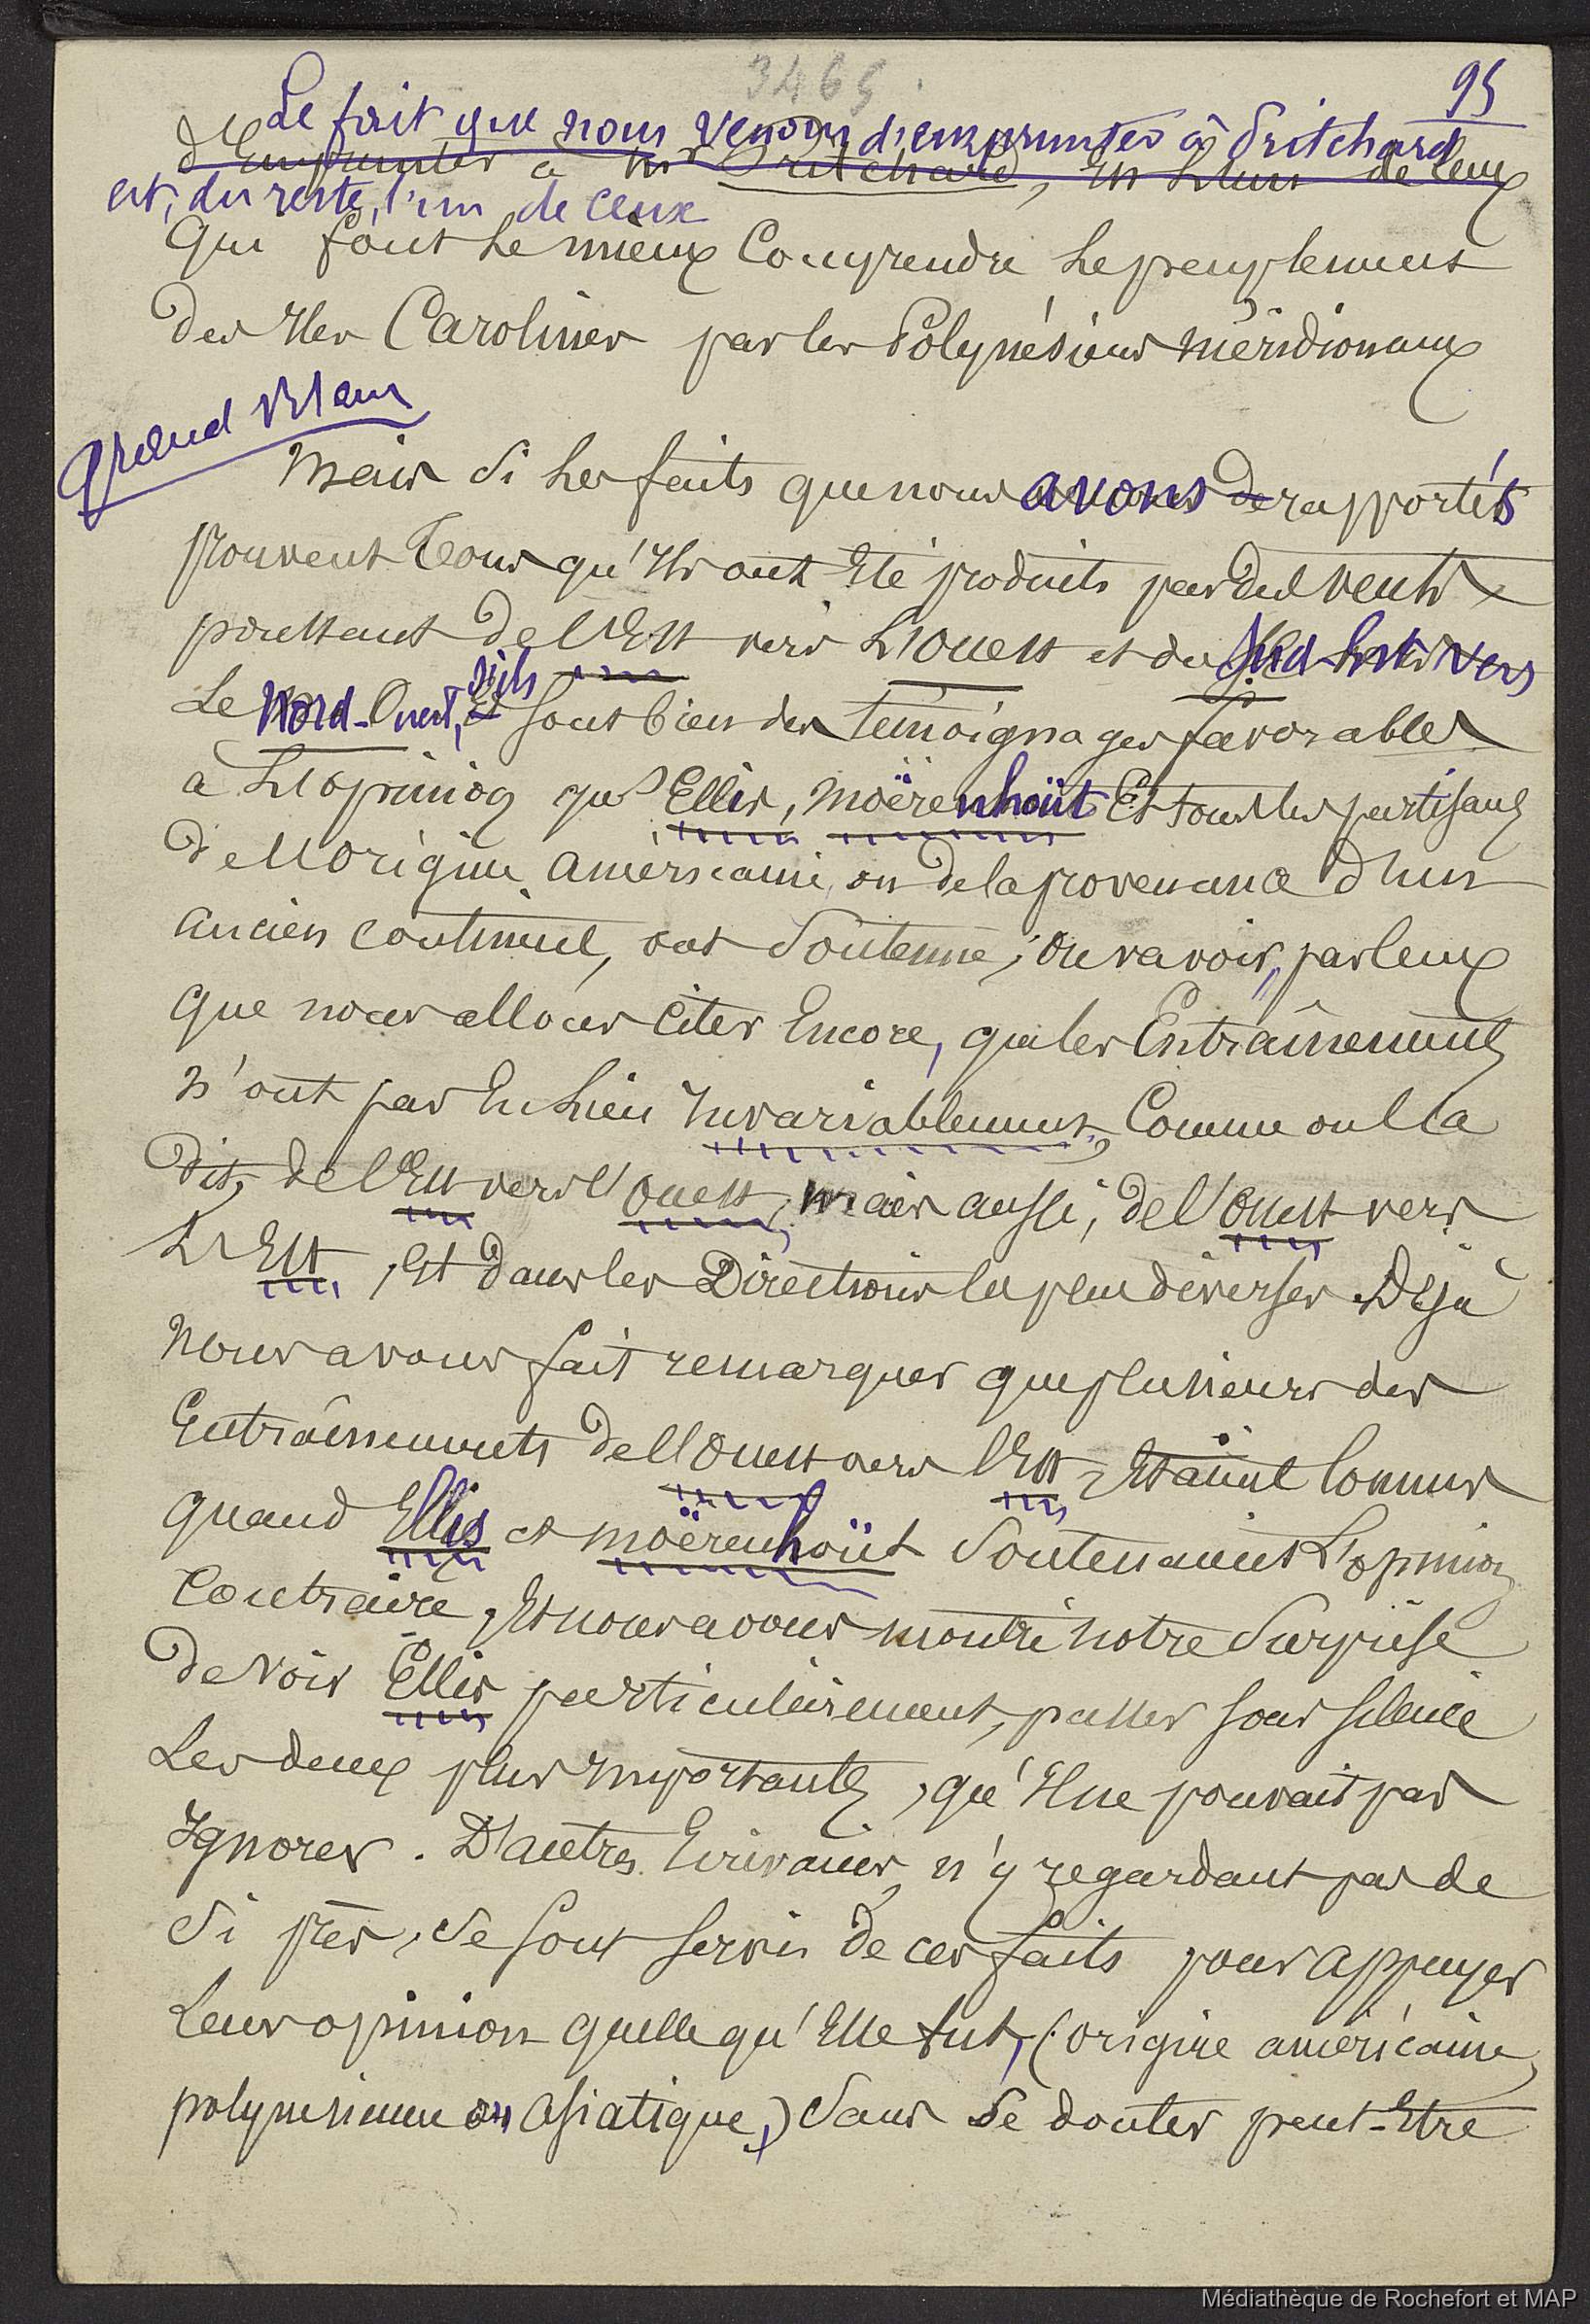 3465
95
Le fait que nous venons d'emprunter à Pritchard
d'Emprunter à Mr Pritchard, Est L'un de Ceux
est, du reste, l'un de ceux
Qui font Le mieux Comprendre Le peuplement
Des Iles Carolines par les Polynésiens Méridionaux
Grand Blanc
Mais Si Les faits que nous avons de rapportés
prouvent Tous qu'Ils ont Eté produits par des vents
poussant De l'Est vers L'Ouest et du Sud-Est vers
Le Nord-Ouest, s'ils sont bien des témoignages favorables
à L'Opinion que Ellis, Moërenhoüt Et tous les partisans
De l'Origine Américaine, ou De la provenance d'un
ancien Continent, ont Soutenue, On va voir, par Ceux
Que nous allons Citer Encore, que les Entraînements
N'ont pas Eu Lieu Invariablement, Comme on l'a
Dit, de l'Est vers l'Ouest, Mais aussi, de l'Ouest vers
L'Est, Et Dans les Directions les plus diverses. Déjà
Nous avons fait remarquer que plusieurs des
Entraînements De l'Ouest vers l'Est, Etaient Connus
Quand Ellis et Moërenhoüt Soutenaient L'opinion
Contraire, Et nous avons montré notre Surprise
De voir Ellis particulièrement, passer sous silence
Les deux plus Importants, qu'Il ne pouvait pas
Ignorer. D'autres Ecrivains, n'y regardant pas de
Si près, Se Sont servis De ces faits pour appuyer
Leur opinion quelle qu'Elle fut, (origine américaine,
polynésienne ou Asiatique,) Sans Se douter peut-Etre
Médiathèque de Rochefort et MAP